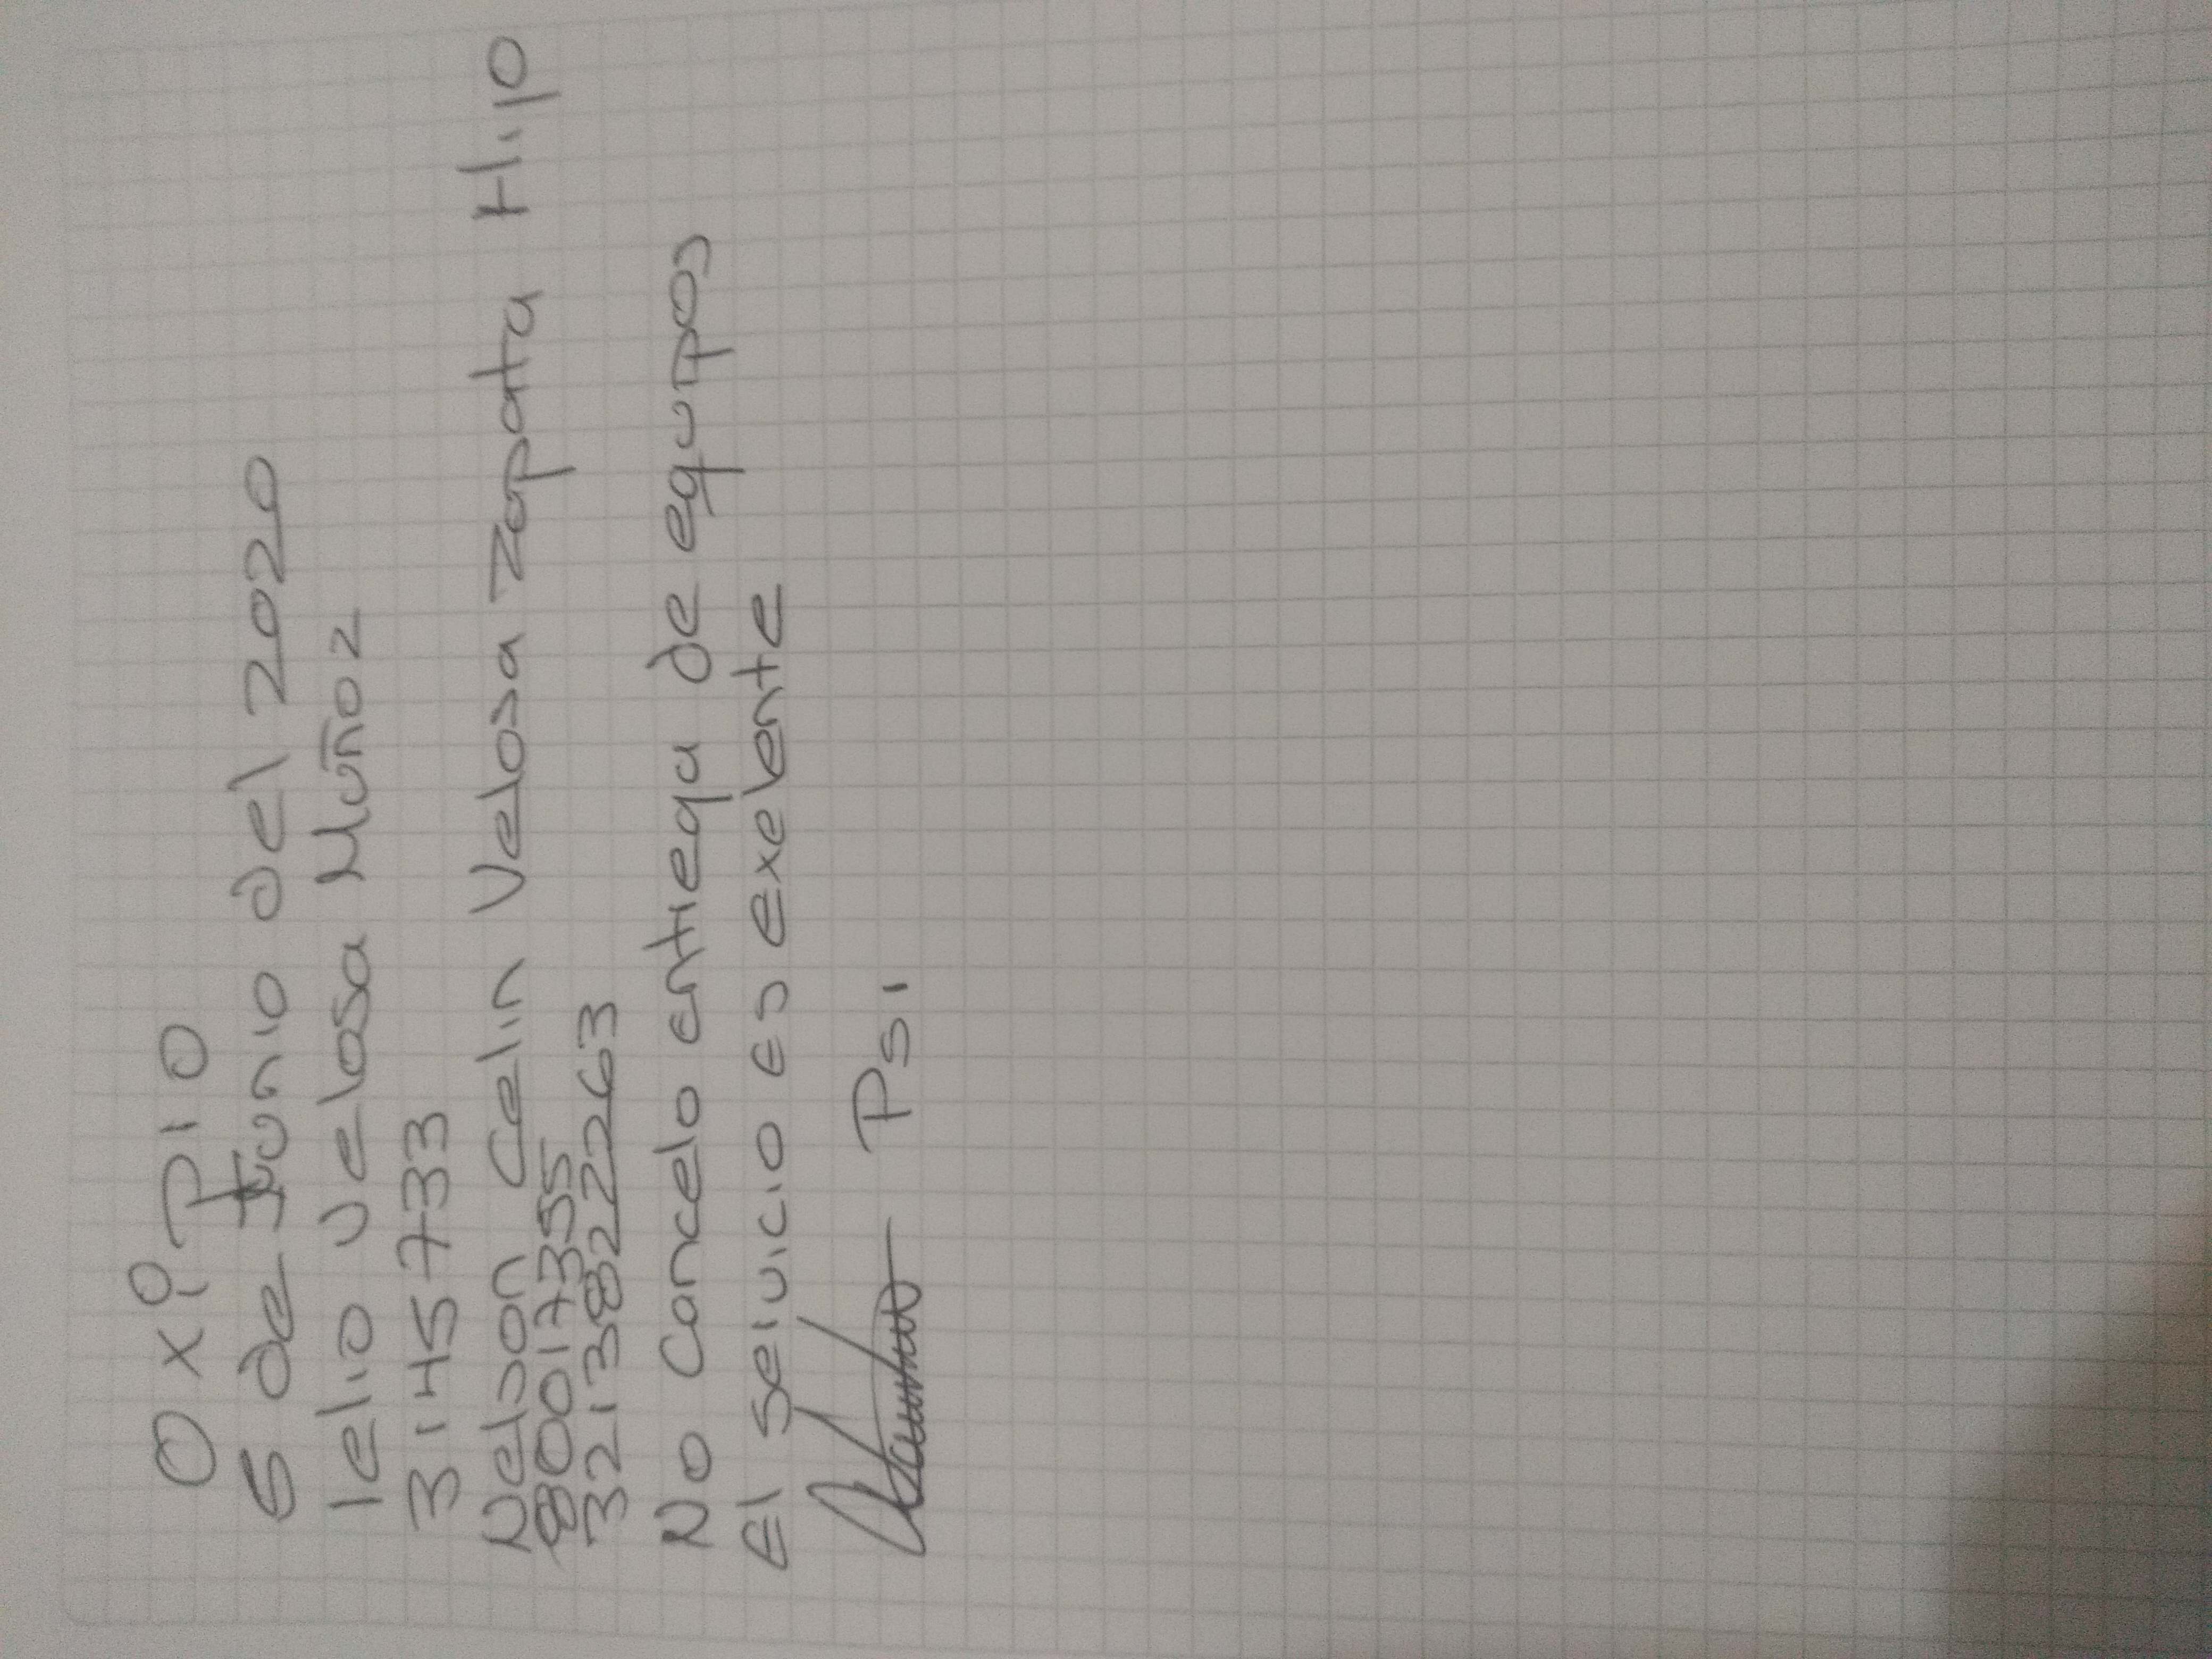 Oxi Pio
5 de Junio del 2020
lelio Velosa Muñoz
3145733
Nelson Celin Velosa Zapata Hijo
80017355
3213822263
No Cancelo entrega de equipos
El servicio es exelente
Psi